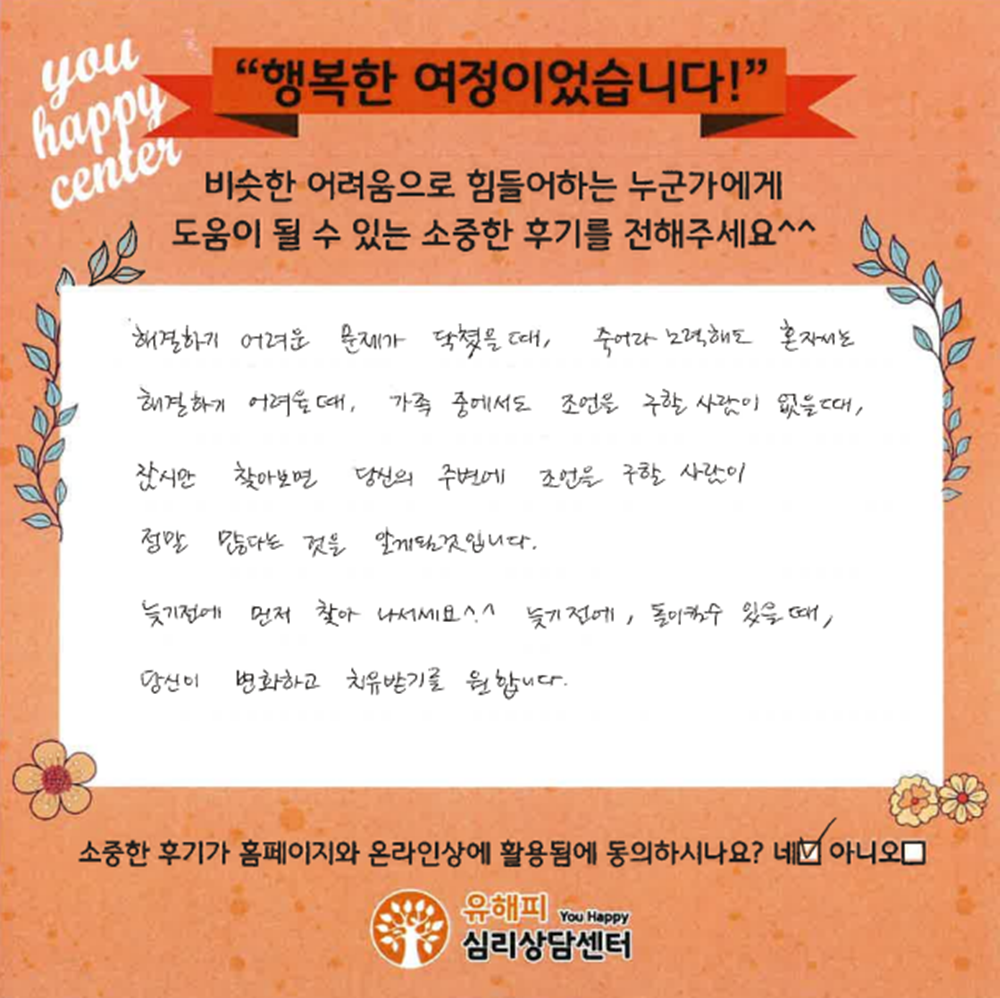 you
happy
center
“행복한 여정이었습니다!”
비슷한 어려움으로 힘들어하는 누군가에게
도움이 될 수 있는 소중한 후기를 전해주세요^^
해결하기 어려운 문제가 닥쳤을때, 죽어라 노력해도 혼자서는
해결하기 어려울때, 가족 중에서도 조언을 구할 사람이 없을때,
잠시만 찾아보면 당신의 주변에 조언을 구할 사람이
정말 많다는 것을 알게될것입니다.
늦기전에 먼저 찾아 나서세요^^ 늦기전에, 돌이킬수 있을때,
당신이 변화하고 치유받기를 원합니다.
소중한 후기가 홈페이지와 온라인상에 활용됨에 동의하시나요? 네☑ 아니오☐
유해피 You Happy
심리상담센터